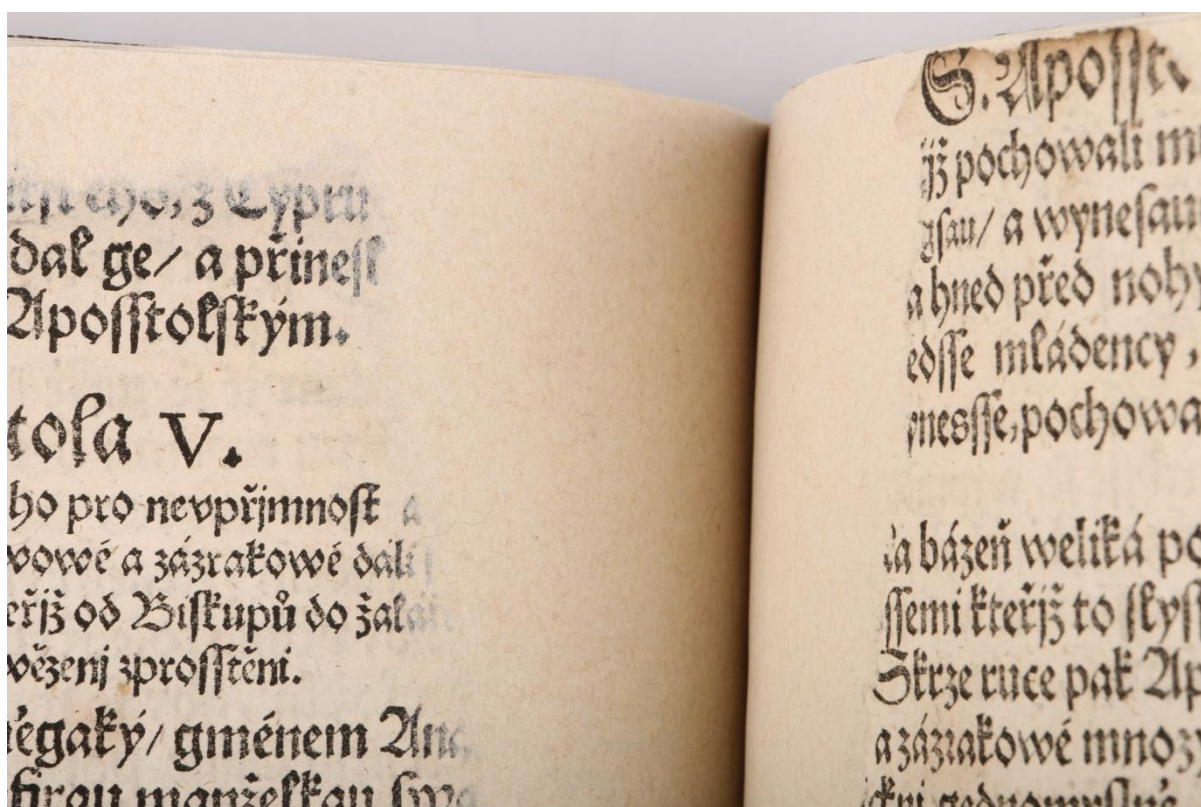 z Cypru
dal ge/ a přinesl
Aposstolským.
tola V.
ho pro nevpřjmnost a
vowé a zázrakowé dáli
eřjž od Biskupů do žalář
wězenj zprosstěni.
ěgaký/ gménem Ana
firau manželkau swa
S. Aposst
gjž pochowali m
gsau/ a wynesau
a hned před nohy
edsse mládency,
nesse, pochowa
la bázeň weliká po
ssemi kteřjž to slyss
Skrze ruce pak Ap
a zázrakowé mnozy